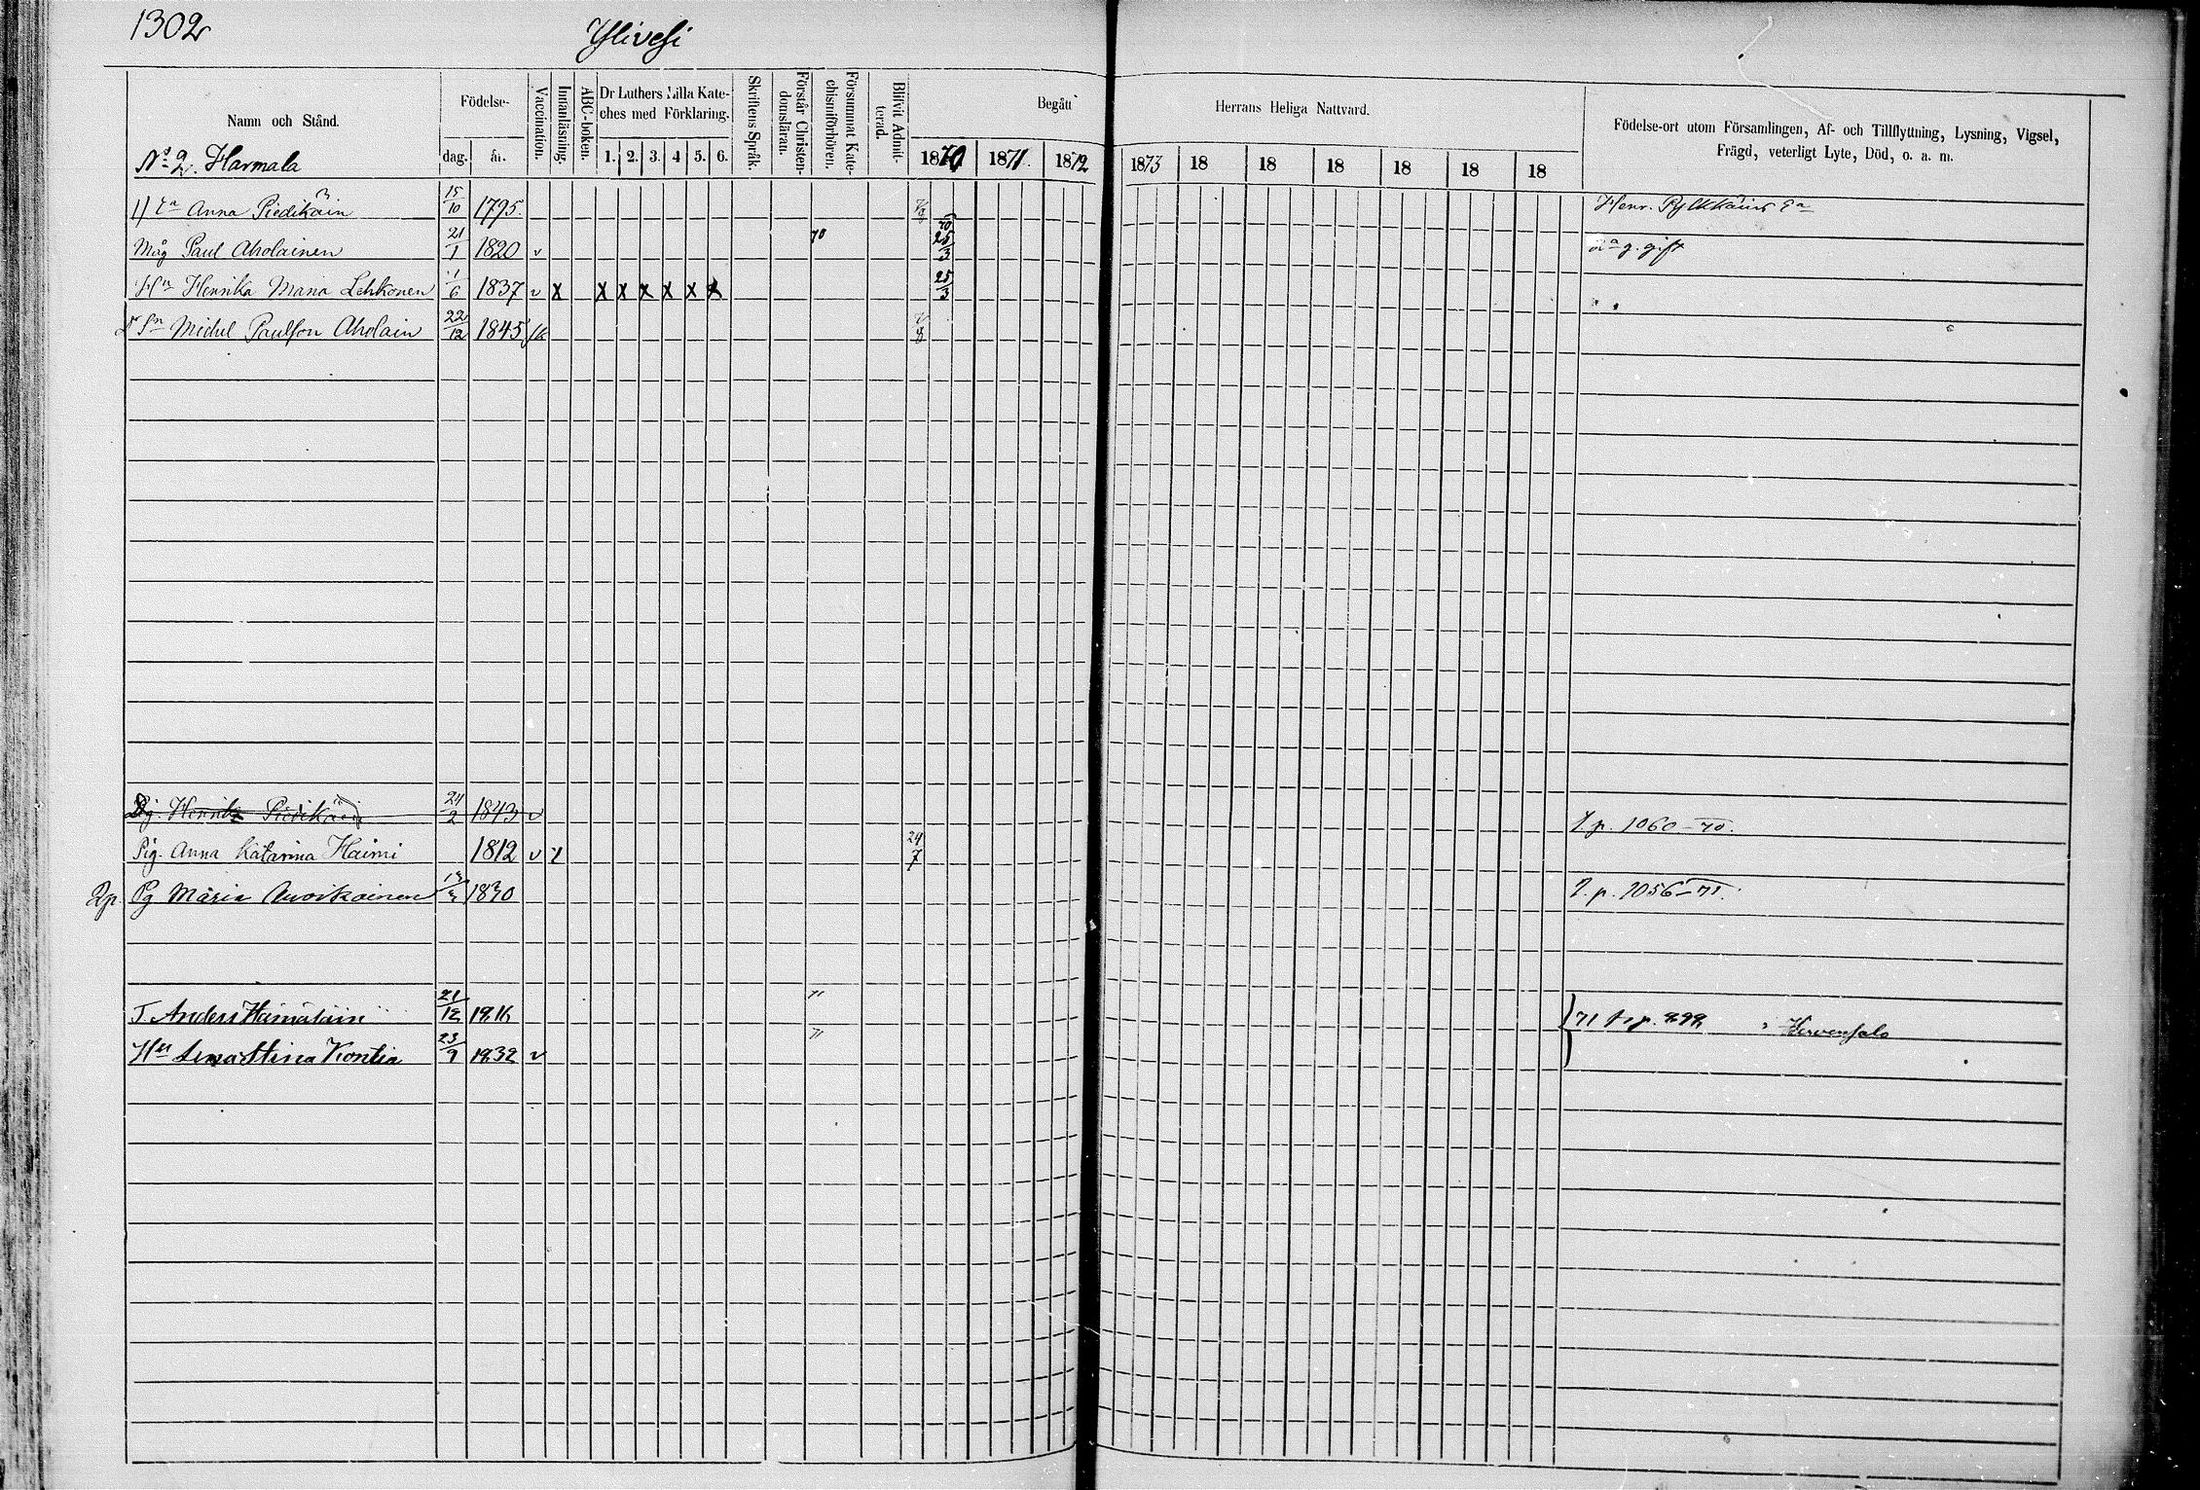 1302
Ylivesi
Namn och Stånd.
Födelse-
dag.
år.
Vaccination.
Innanläsning.
ABC-boken.
Dr Luthers Lilla Kate-
ches med Förklaring.
1. 2. 3. 4 5. 6.
Skriftens Språk.
Förstår Christen-
domsläran.
Försummat Kate-
chismiförhören.
Blifvit Admit-
terad.
Begått
Herrans Heliga Nattvard.
1870 1871. 1872 1873 18 18 18 18 18 18
Födelse-ort utom Församlingen, Af- och Tillflyttning, Lysning, Vigsel,
Frägd, veterligt Lyte, Död, o. a. m.
No 2. Harmala
1) Ea Anna Piedikäin 15/10 1795. Henr. Pylkkäins Ea
Måg Paul Aholainen 21/1 1820 v 70 25/3 2a g. gift
Hu Henrika Maria Lehkonen 1/6 1837 v x x x x x x x 25/3
Sn Michel Paulson Aholain 22/12 1845
Pig. Henrika Piedikäin 24/2 1843 v p. 1060-70.
Pig. Anna Katarina Haimi 1812 v x 24/7
Pg Maria Auvikainen 1830 p. 1056-71.
T. Anders Hämäläin 21/12 1816 71
71 p. 898 Kervensalo
Hu Lena Stina Kontia 23/9 1832 v 71